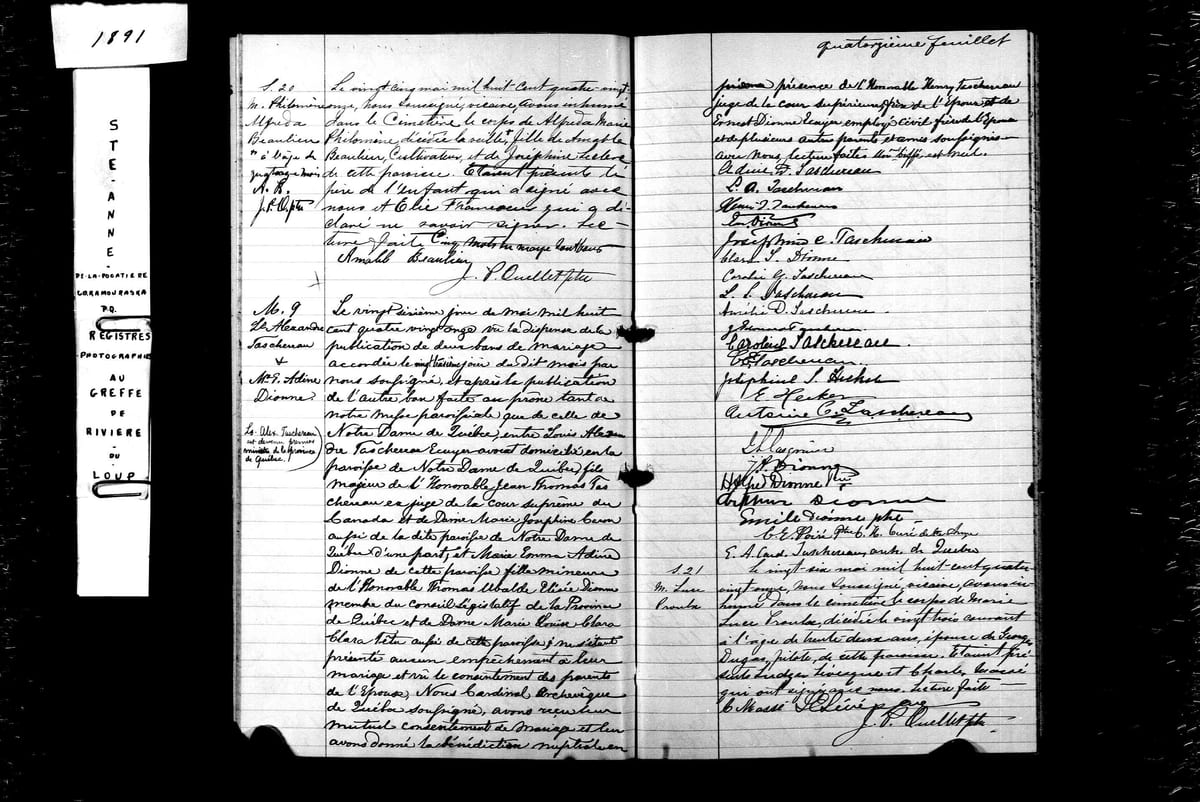 1891
STE ANNE
DE-LA-POCATIERE
CO. KAMOURASKA
P.Q.
REGISTRES
PHOTOGRAPHIES
AU
GREFFE
DE
RIVIERE
DU
LOUP
S. 20
M. Philomène
Alfréda
Beaulieu
à l'âge de
quatorze mois
J. P. O. ptre
Le vingt cinq mai mil huit cent quatre vingt
onze, nous soussigné, vicaire, avons inhumé
dans le Cimetière le corps de Alfréda Marie
Philomène, décédée la veille, fille de Amable
Beaulieu, Cultivateur, et de Joséphine Leclerc
de cette paroisse. Etaient présents le
père de l'enfant qui a signé avec
nous et Elie Francoeur qui a dé-
claré ne savoir signer. Lec-
ture faite
Amable Beaulieu
J. P. Ouellet ptre
M. 9
Ls Alexandre
Taschereau
+
M. E. Adine
Dionne
Ls. Alex. Taschereau
est devenu premier
ministre de la Province
de Québec.
Le vingt sixième jour de mai mil huit
cent quatre vingt onze vu la dispense de la
publication de deux bans de mariage
accordée le vingt troisième jour du dit mois par
nous soussigné, et après la publication
de l'autre ban faite au prône tant de
notre messe paroissiale que de celle de
Notre Dame de Québec, entre Louis Alexan
dre Taschereau Ecuyer avocat domicilié en la
paroisse de Notre Dame de Québec, fils
majeur de l'Honorable Jean Thomas Tas
chereau ex juge de la cour suprême du
Canada et de Dame Marie Joséphine Caron
aussi de la dite paroisse de Notre Dame de
Québec d'une part, et Marie Emma Adine
Dionne de cette paroisse fille mineure
de l'Honorable Thomas Ubalde Elisée Dionne
membre du Conseil Législatif de la Province
de Québec et de Dame Marie Louise Clara
Clara Têtu aussi de cette paroisse; ne s'étant
présenté aucun empêchement à leur
mariage et vu le consentement des parents
de l'Epouse, Nous Cardinal Archevêque
de Québec soussigné, avons reçu leur
mutuel consentement de mariage et leur
avons donné la bénédiction nuptiale en
quatorzième feuillet
présence de l'Honorable Henry Taschereau
juge de la cour supérieure, frère de l'Epoux et de
Ernest Dionne Ecuyer employé civil frère de l'Epouse
et de plusieurs autres parents et amis soussignés
avec nous, lecture faite. Un mot biffé est nul.
Adine D. Taschereau
L. A. Taschereau
Henri T. Taschereau
Joséphine C. Taschereau
Clara T. Dionne
Coralie G. Taschereau
L. E. Taschereau
Amélie D. Taschereau
Caroline Taschereau
C. E. Taschereau
Joséphine S. Hecker
E Hecker
Antoine C. Taschereau
Dionne
Alfred Dionne Ptre
Arthur Dionne
Emile Dionne ptre
C. E. Poiré Ptre C. H. Curé de Ste Anne
E. A. Card. Taschereau, arch. de Québec
S. 21
M. Luce
Proulx
Le vingt-six mai mil huit cent quatre
vingt onze, nous soussigné, vicaire, avons in
humé dans le cimetière le corps de Marie
Luce Proulx, décédée le vingt trois courant
à l'âge de trente deux ans, épouse de George
Dugas, pilote, de cette paroisse. Etaient pré
sents Lévesque et Charles Massé
qui ont signé avec nous. Lecture faite
C Massé
J. P. Ouellet ptre